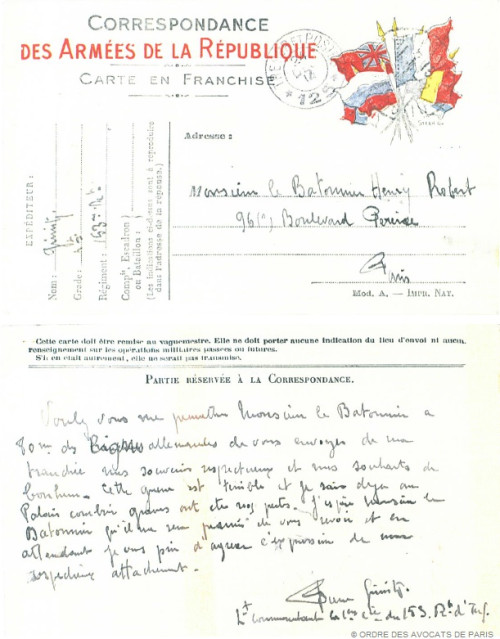 CORRESPONDANCE
DES ARMÉES DE LA RÉPUBLIQUE
CARTE EN FRANCHISE
12
EXPÉDITEUR :
Nom :
Grade :
Régiment : 153e Rt
Comp{ie}, Escadron
ou Batterie :
(Les indications ci-dessus sont à reproduire
dans l'adresse de la réponse.)
Adresse :
Monsieur le Batonnier Henry Robert
96 Boulevard Pereire
Paris
Mod. A. — IMPR. NAT.
Cette carte doit être remise au vaguemestre. Elle ne doit porter aucune indication du lieu d'envoi ni aucun
renseignement sur les opérations militaires passées ou futures.
S'il en était autrement, elle ne serait pas transmise.
PARTIE RÉSERVÉE À LA CORRESPONDANCE.
vous me permettre Monsieur le Batonnier a
80 m. des allemandes de vous envoyer de ma
tranchée mes souvenirs respectueux et mes souhaits de
bonheur. Cette guerre est terrible et je sais deja au
Palais combien graves ont été nos pertes. J'espère Monsieur le
Batonnier qu'il me sera permis de vous revoir et en
attendant je vous prie d'agréer l'expression de mon
respectueux attachement.
Pierre
Lt commandant la 1ere Cie du 153 Rt d'Inf.
© ORDRE DES AVOCATS DE PARIS